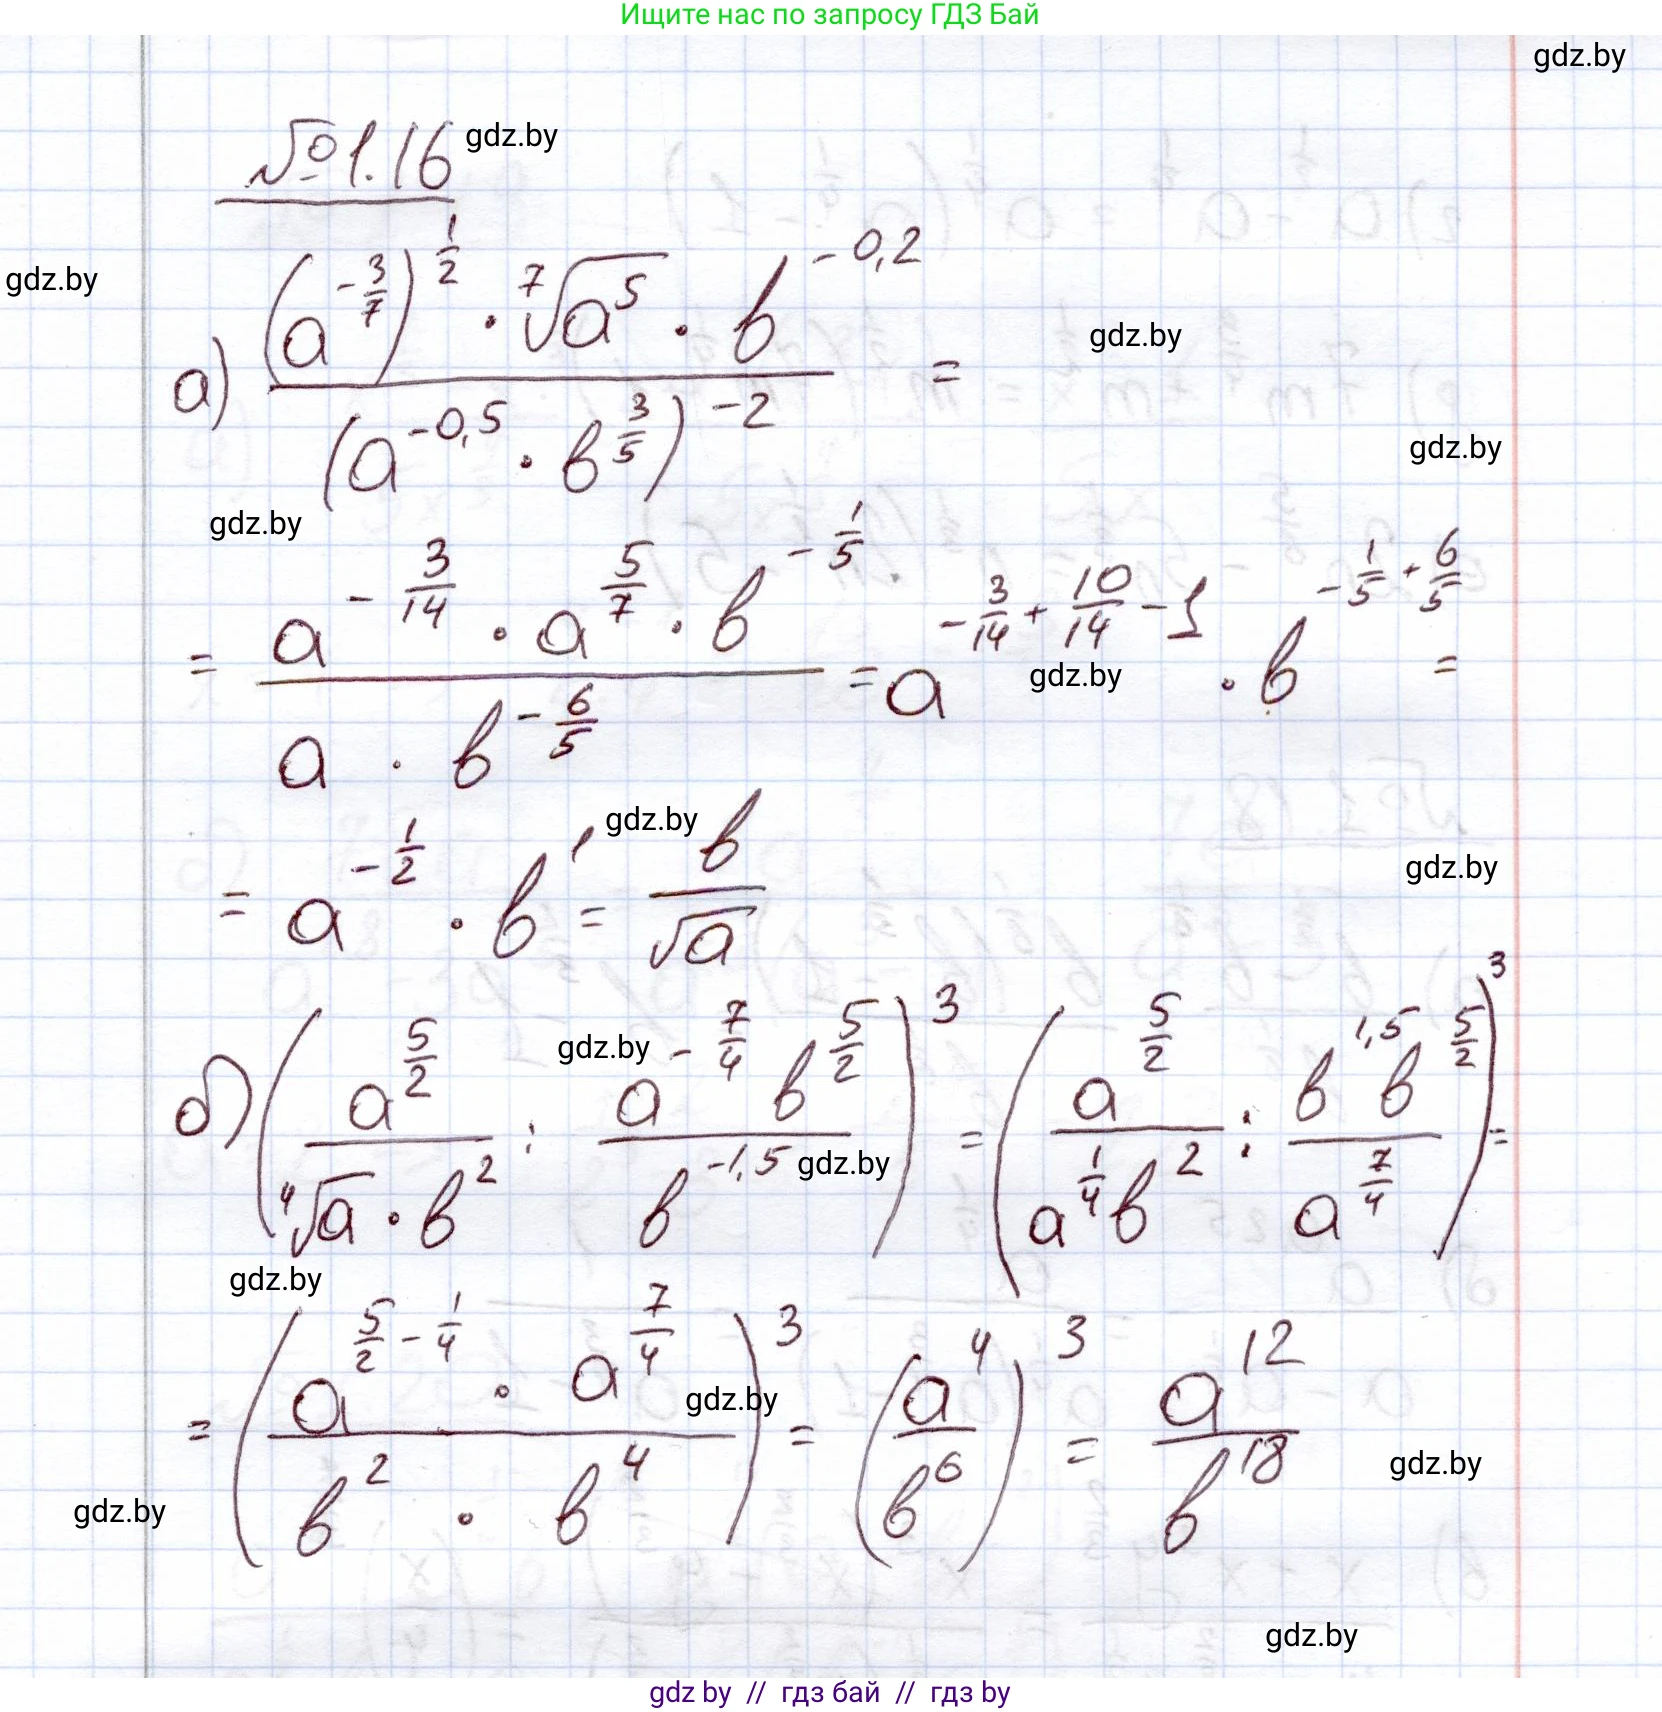 Ищите нас по запросу ГДЗ Бай
gdz.by
№1.16 gdz.by
gdz.by
а) ((a^(-3/7))^(1/2) · ⁷√(a^5) · b^(-0,2)) / (a^(-0,5) · b^(3/5))^(-2) =
gdz.by
gdz.by
gdz.by
= (a^(-3/14) · a^(5/7) · b^(-1/5)) / (a · b^(-6/5)) = a^(-3/14 + 10/14 - 1) · b^(-1/5 + 6/5) =
gdz.by
gdz.by
= a^(-1/2) · b^1 = b/√a
gdz.by
б) (a^(5/2) / (⁴√a · b^2) : (a^(-7/4) b^(5/2)) / b^(-1,5))^3 = (a^(5/2) / (a^(1/4) b^2) : (b^(1,5) b^(5/2)) / a^(7/4))^3 =
gdz.by
gdz.by
gdz.by
= ((a^(5/2 - 1/4) · a^(7/4)) / (b^2 · b^4))^3 = (a^4 / b^6)^3 = a^12 / b^18
gdz.by
gdz.by
gdz.by
gdz.by
gdz by // гдз бай // гдз by